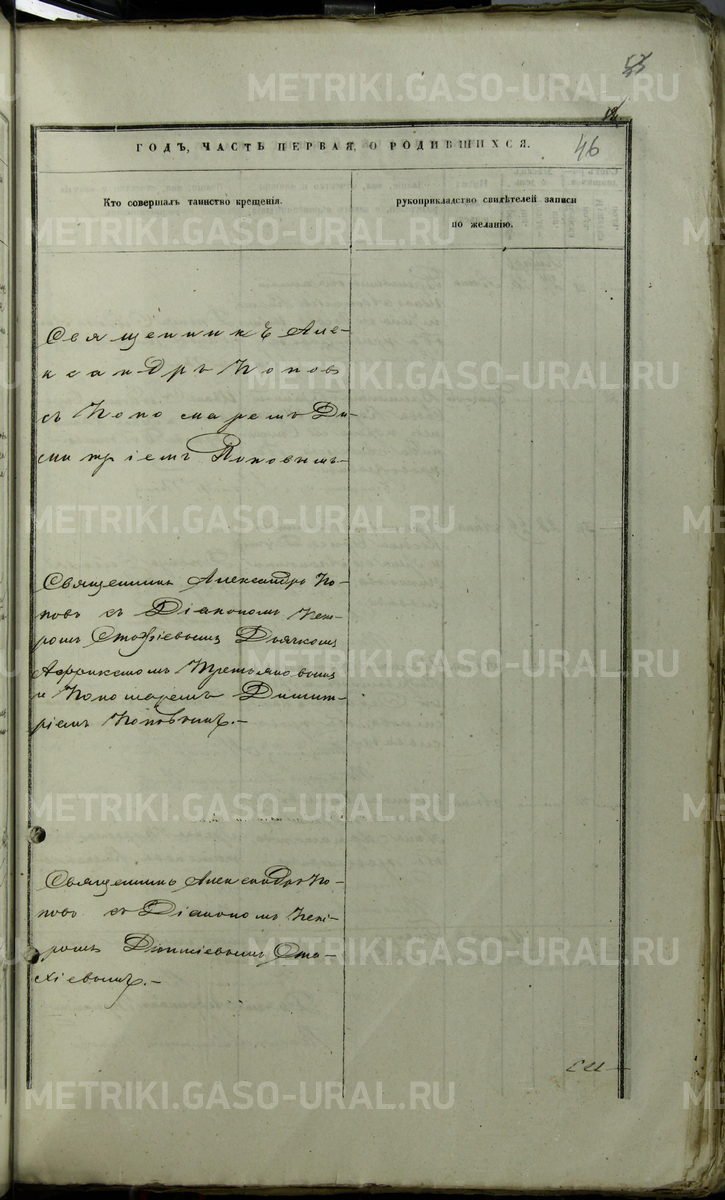 METRIKI.GASO-URAL.RU
53
12.
46
ГОДЪ, ЧАСТЬ ПЕРВАЯ, О РОДИВШИХСЯ.
Кто совершалъ таинство крещенія.
рукоприкладство свидѣтелей записи
по желанію.
Священникъ Але-
ксандръ Поповъ
съ Пономаремъ Ди-
митріемъ Поповымъ
Священникъ Александръ По-
повъ съ Діакономъ Пет-
ромъ Стахіевымъ Дьячкомъ
Африкетомъ Третьяковымъ
и Пономаремъ Димит-
ріемъ Поповымъ.-
Священникъ Александръ По-
повъ съ Діакономъ Пет-
ромъ Ста-
хіевымъ.-